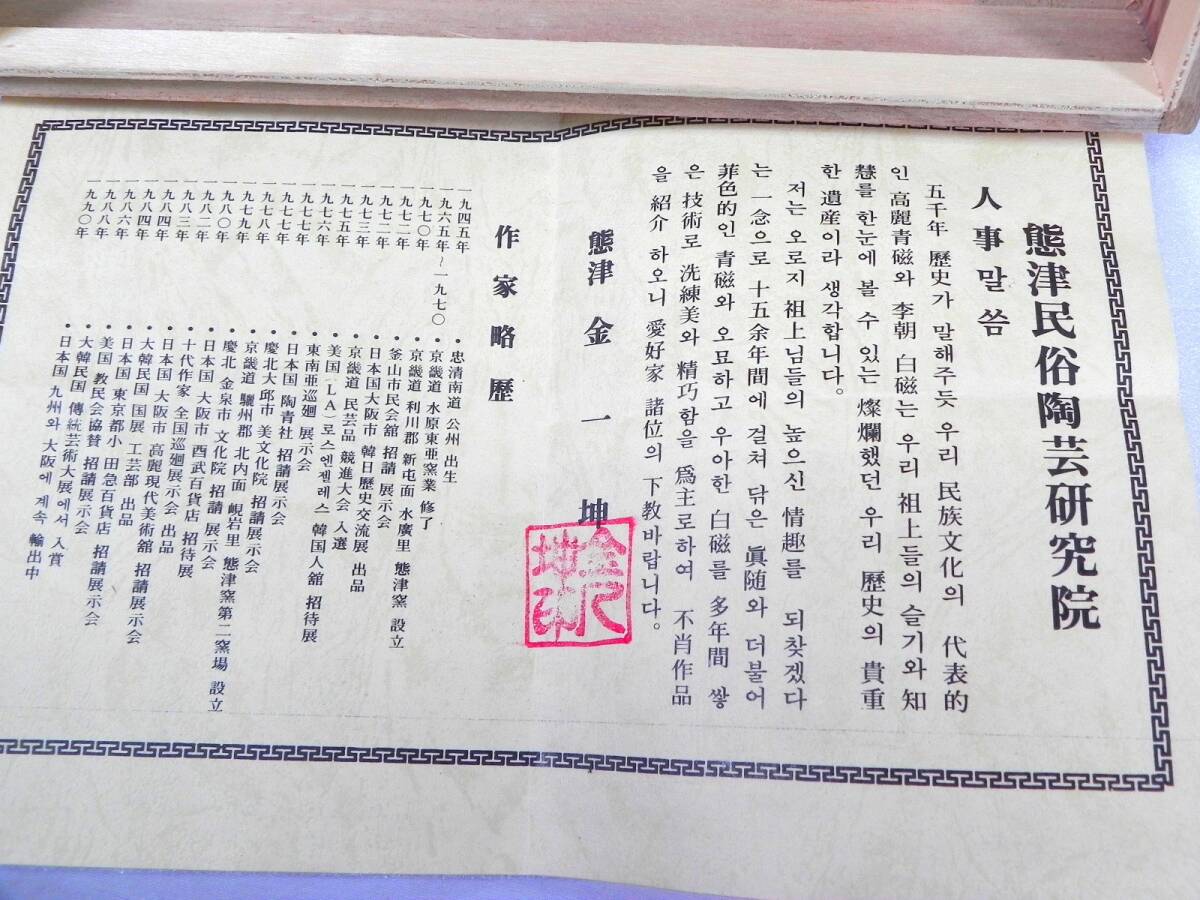 態津民俗陶芸研究院
人事말씀
五千年 歴史가 말해주듯 우리 民族文化의 代表的
인 高麗青磁와 李朝 白磁는 우리 祖上들의 슬기와 知
慧를 한눈에 볼 수 있는 燦爛했던 우리 歴史의 貴重
한 遺産이라 생각합니다。
저는 오로지 祖上님들의 높으신 情趣를 되찾겠다
는 一念으로 十五余年間에 걸쳐 닦은 眞随와 더불어
菲色的인 青磁와 오묘하고 우아한 白磁를 多年間 쌓
은 技術로 洗練美와 精巧함을 爲主로하여 不肖作品
을 紹介 하오니 愛好家 諸位의 下教바랍니다。
態津 金 一 坤
金一坤印
作家略歴
一九四五年 • 忠清南道 公州 出生
一九六五年～一九七〇 • 京畿道 水原東亜窯業 修了
一九七〇年 • 京畿道 利川郡 新屯面 水廣里 態津窯 設立
一九七二年 • 釜山市民会舘 招請 展示会
一九七二年 • 日本国大阪市 韓日歴史交流展 出品
一九七三年 • 京畿道 民芸品 競進大会 入選
一九七五年 • 美国(LA)로스엔젤레스 韓国人舘 招待展
一九七六年 • 東南亜巡廻 展示会
一九七七年 • 日本国 陶青社 招請展示会
一九七七年 • 慶北大邱市 美文化院 招請展示会
一九七八年 • 京畿道 驪州郡 北内面 峴岩里 態津窯第二窯場 設立
一九七九年 • 慶北 金泉市 文化院 招請 展示会
一九八〇年 • 日本国 大阪市 酉武百貨店 招待展
一九八二年 • 十代作家 全国巡廻展示会 出品
一九八三年 • 日本国 大阪市 高麗現代美術舘 招請展示会
一九八四年 • 大韓民国 国展 工芸部 出品
一九八四年 • 日本国 東京都小 田急百貨店 招請展示会
一九八六年 • 美国 教民会協賛 招請展示会
一九八八年 • 大韓民国 傳統芸術大展에서 入賞
一九九〇年 • 日本国 九州와 大阪에 계속 輸出中